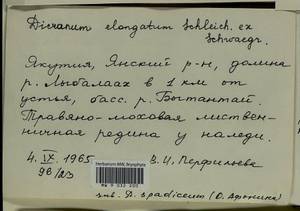 Dicranum elongatum Schleich. ex
Schwaegr.
Якутия, Янский р-н, долина
р. Лыбалаах в 1 км от
устья, басс. р. Бытантай.
Травяно-моховая листвен-
ничная редина у наледи.
4. IX. 1965 В. И. Перфильева
96/23
Herbarium MW, Bryophyta
MW 9 032 200
sub. D. spadiceum (О. Афонина)